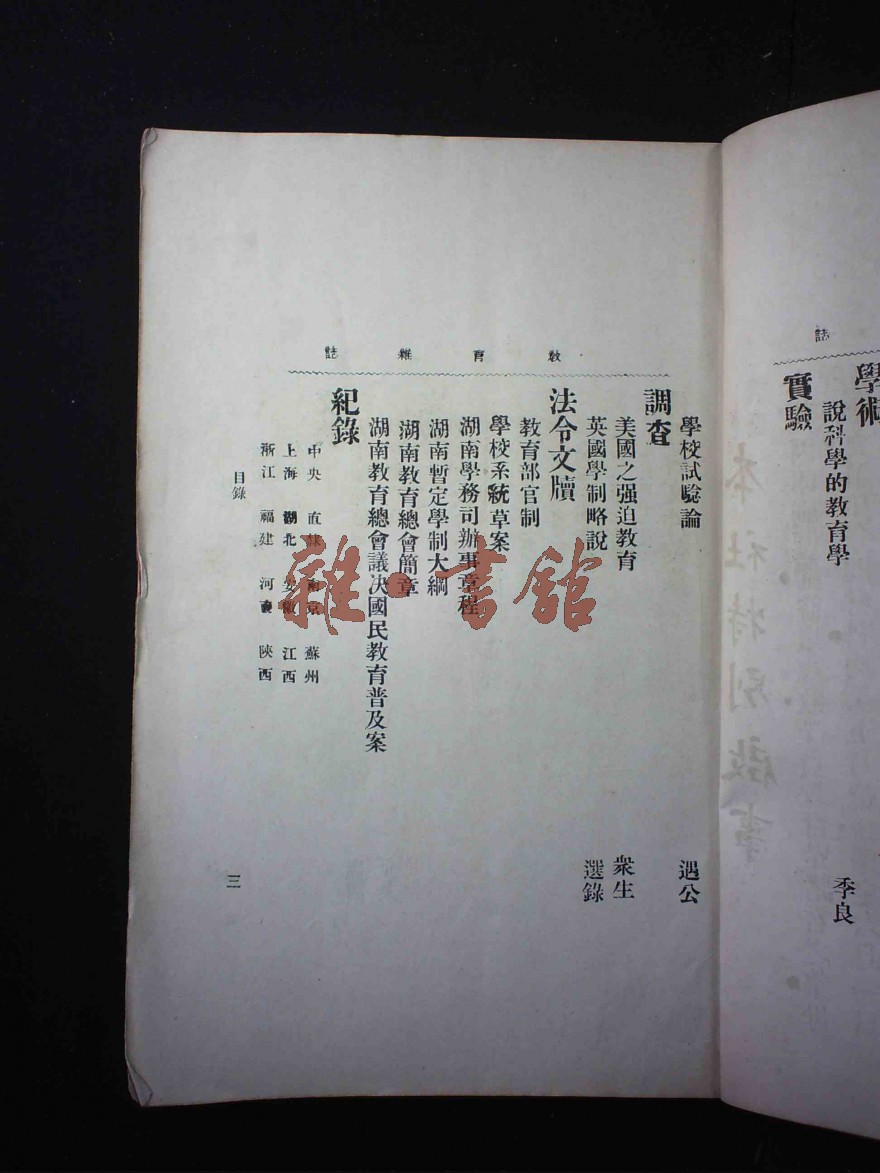 誌
學術
說科學的教育學 季良
實驗
教育雜誌
學校試驗論 遇公
調查
美國之强迫教育 衆生
英國學制略說 選錄
法令文牘
教育部官制
學校系統草案
湖南學務司辦事章程
湖南暫定學制大綱
湖南教育總會簡章
湖南教育總會議决國民教育普及案
紀錄
中央 直隸 南京 蘇州
上海 湖北 安徽 江西
浙江 福建 河南 陝西
目錄
三
本社特別啟事
雜·書館